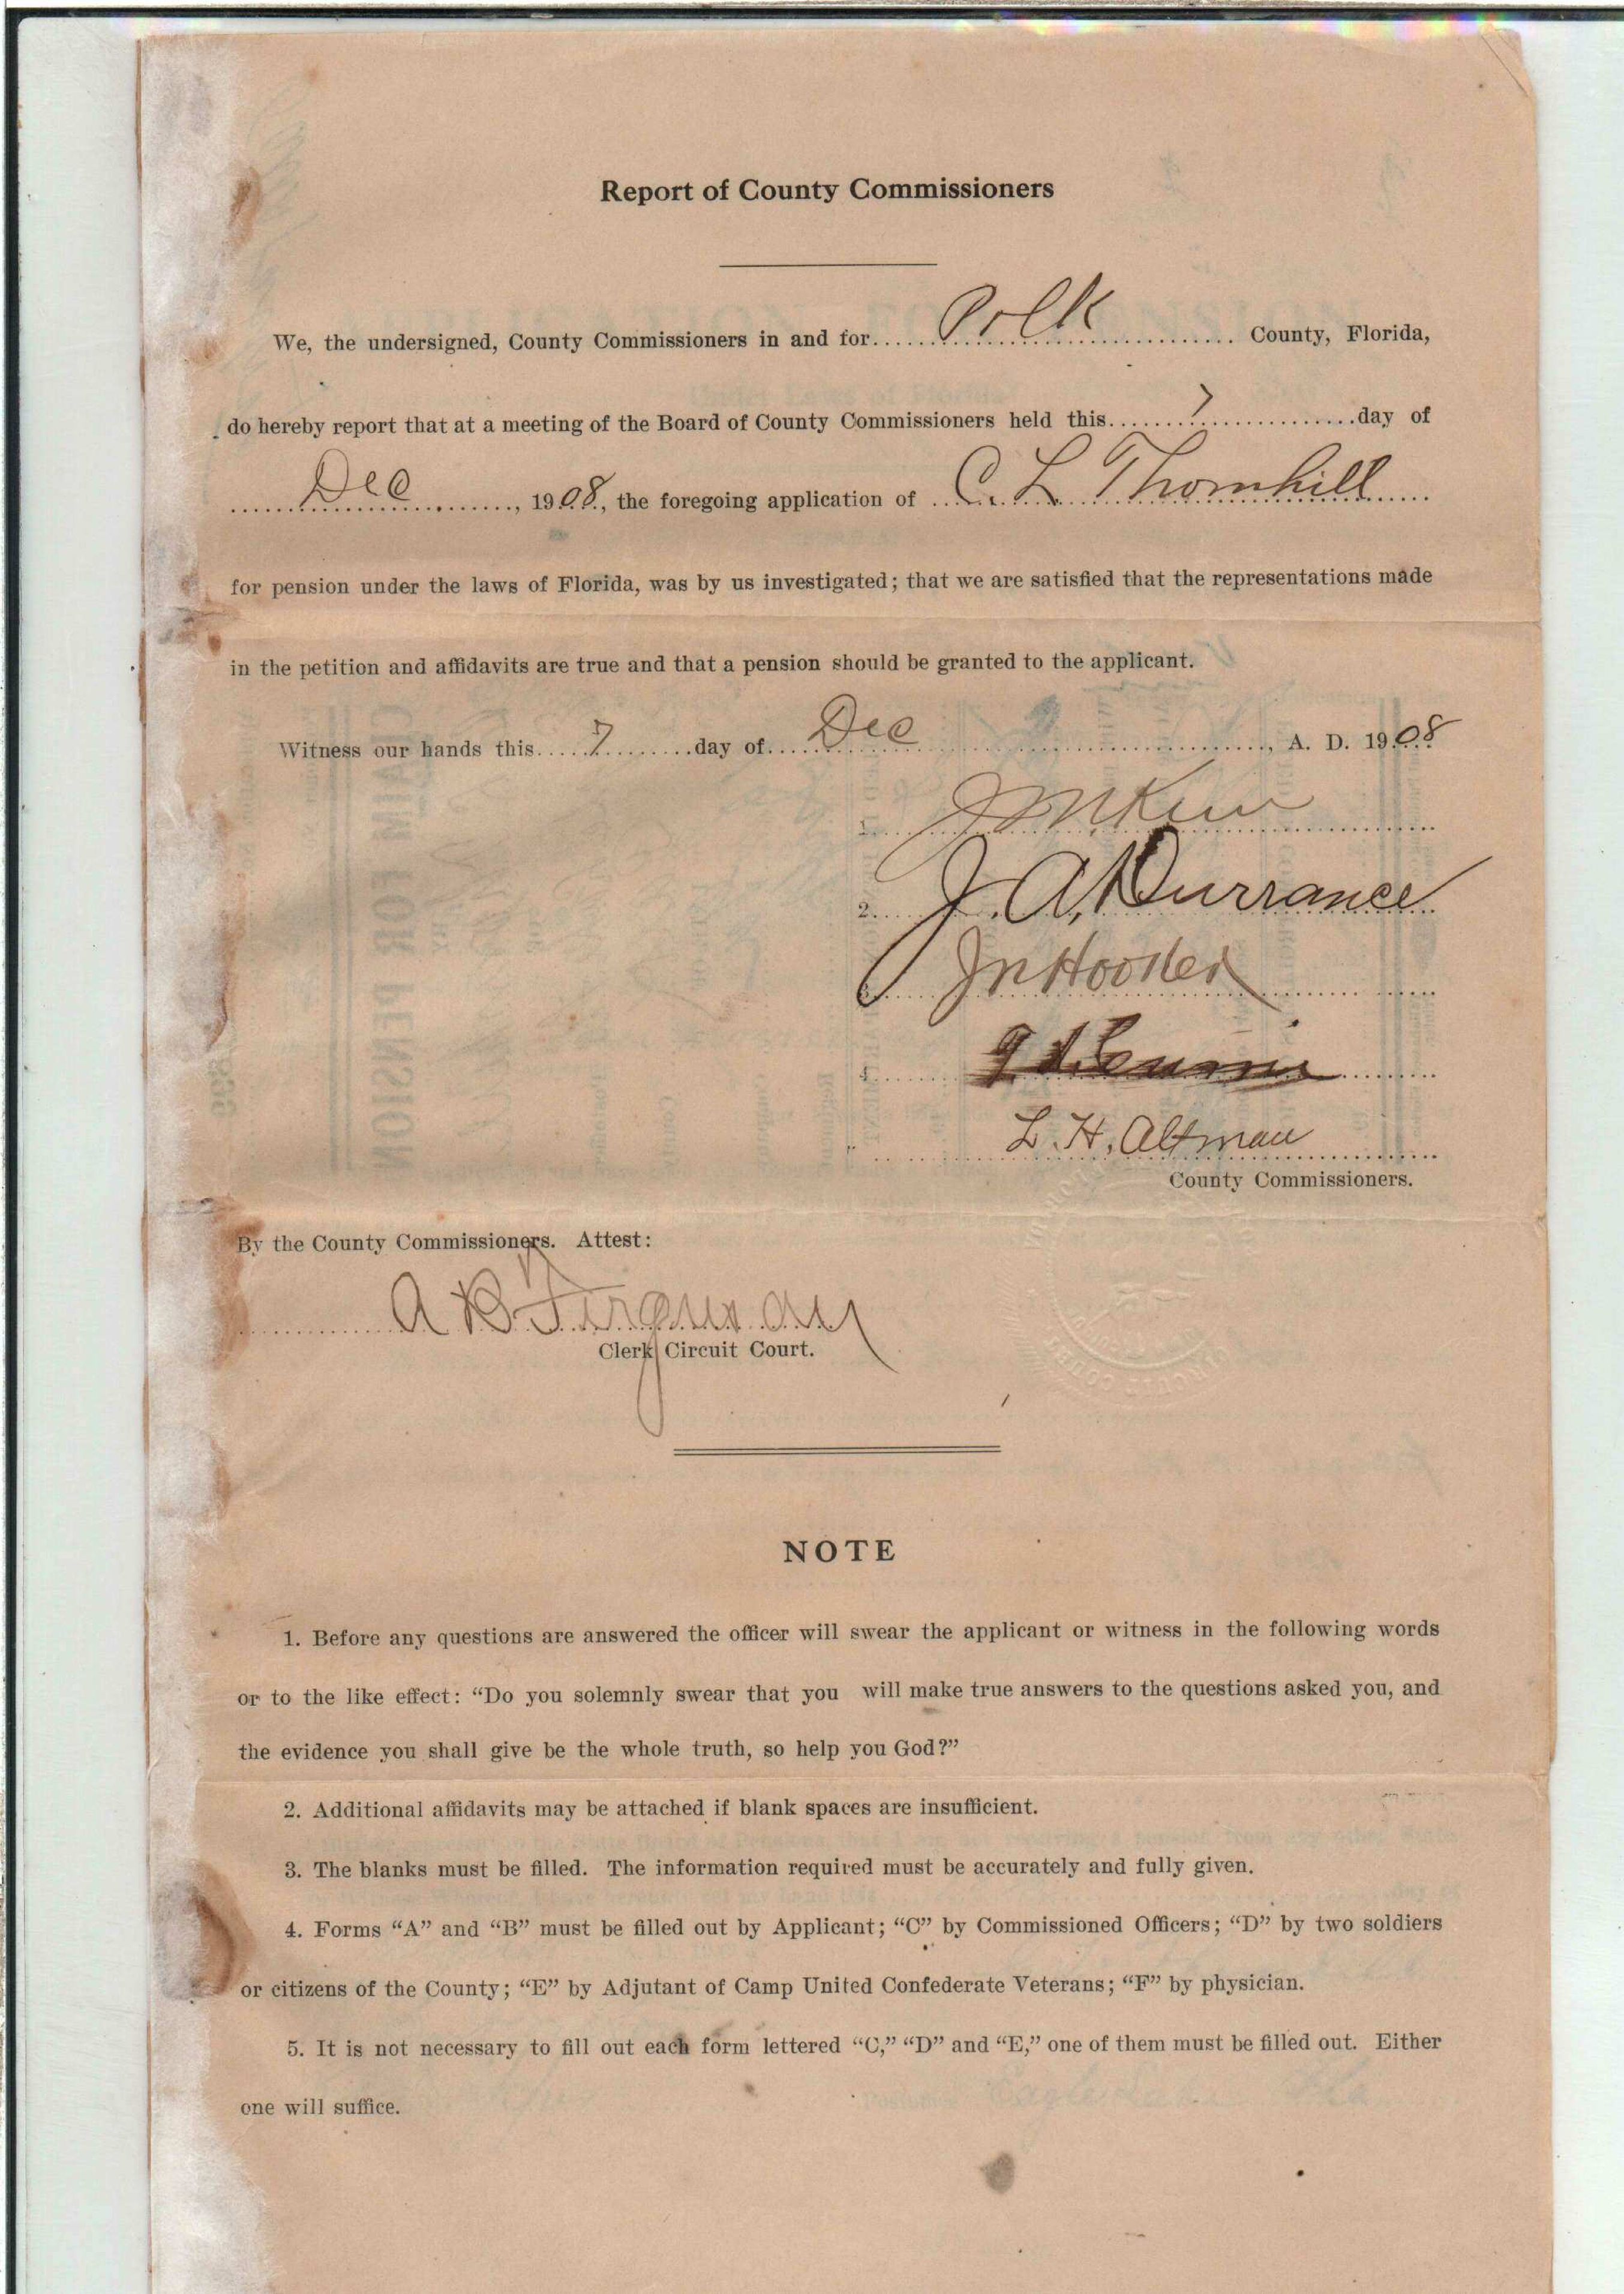 Report of County Commissioners
We, the undersigned, County Commissioners in and for Polk County, Florida,
do hereby report that at a meeting of the Board of County Commissioners held this 7 day of
Dec, 1908, the foregoing application of C. L Thornhill
for pension under the laws of Florida, was by us investigated; that we are satisfied that the representations made
in the petition and affidavits are true and that a pension should be granted to the applicant.
Witness our hands this 7 day of Dec, A. D. 1908
1.
2. J. A. Durrance
J N Hooker
4.
L. H. Altman
County Commissioners.
By the County Commissioners. Attest:
A B Ferguson
Clerk Circuit Court.
NOTE
1. Before any questions are answered the officer will swear the applicant or witness in the following words
or to the like effect: “Do you solemnly swear that you will make true answers to the questions asked you, and
the evidence you shall give be the whole truth, so help you God?”
2. Additional affidavits may be attached if blank spaces are insufficient.
3. The blanks must be filled. The information required must be accurately and fully given.
4. Forms “A” and “B” must be filled out by Applicant; “C” by Commissioned Officers; “D” by two soldiers
or citizens of the County; “E” by Adjutant of Camp United Confederate Veterans; “F” by physician.
5. It is not necessary to fill out each form lettered “C,” “D” and “E,” one of them must be filled out. Either
one will suffice.